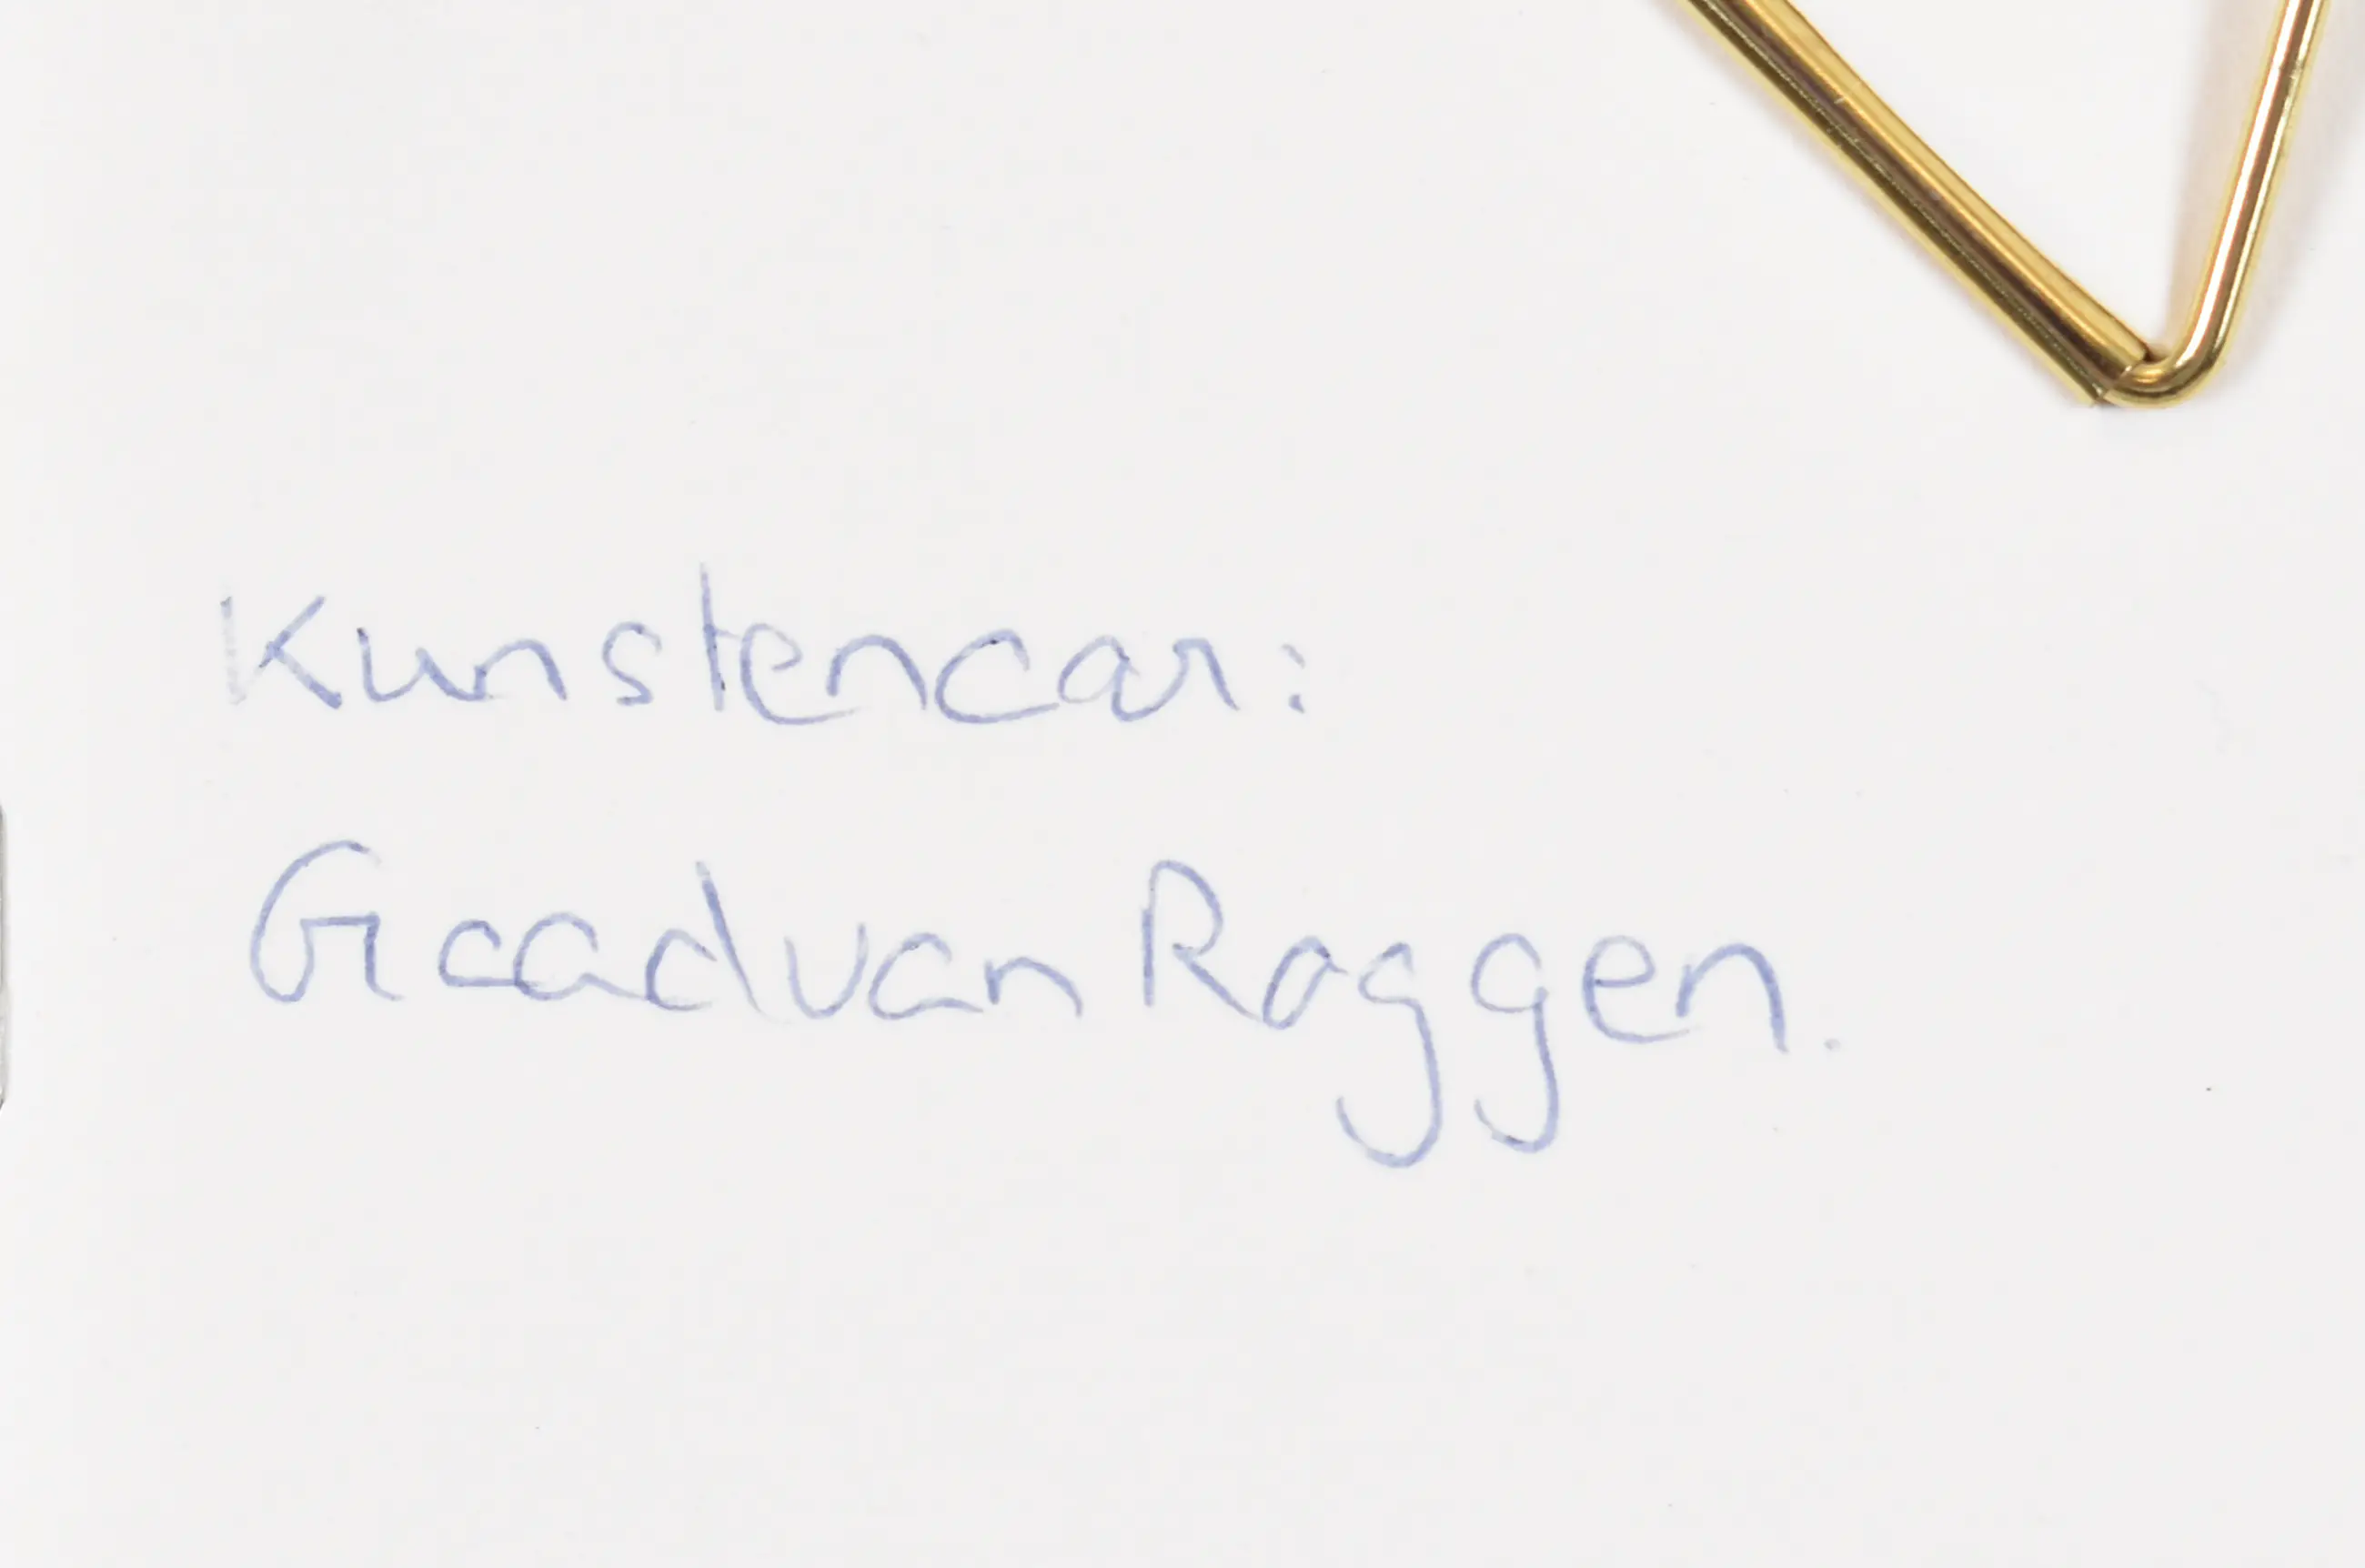 Kunstencar:
Gaad van Roggen.